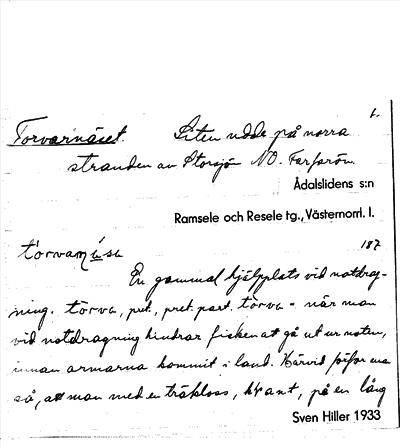 t.
Torvarnäset. Liten udde på norra
stranden av Storsjön NO. Farforön.
Ådalslidens s:n
Ramsele och Resele tg., Västernorrl. l.
187
En gammal hjälpplats vid notdrag-
ning. torva, pret., pret. part. torva = när man
vid notdragning hindrar fisken att gå ut ur noten,
innan armarna kommit i land. Härvid förfor man
så, att man med en träkloss, på en lång
Sven Hiller 1933